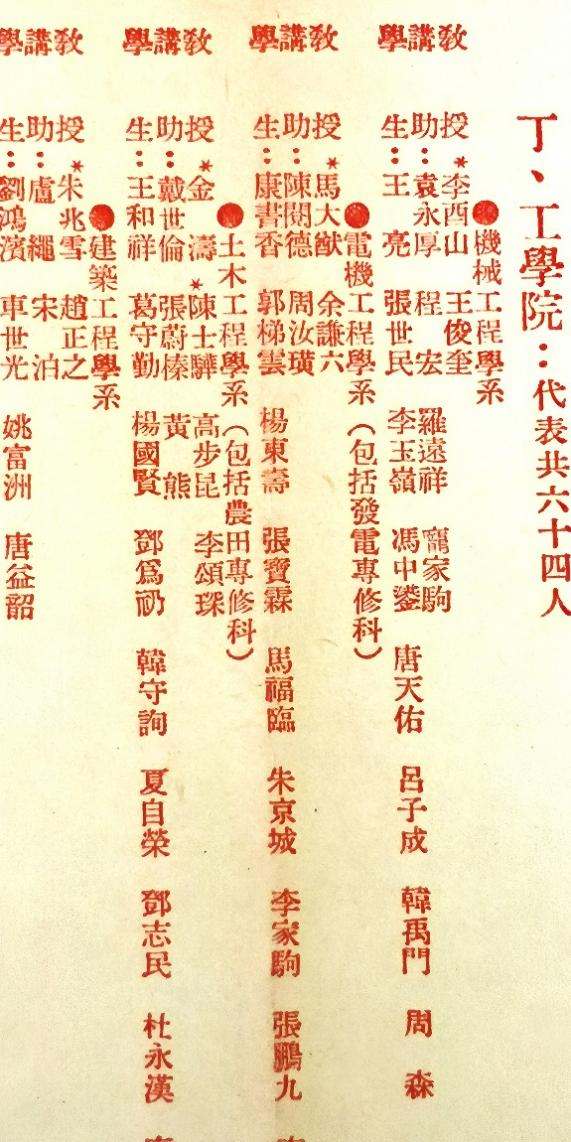 丁、工學院：代表共六十四人
●機械工程學系
教授 *李酉山 王俊奎
講助：袁永厚 程宏 羅遠祥 寵家駒
學生：王亮 張世民 李玉嶺 馮中鎏 唐天佑 呂子成 韓禹門 周森
●電機工程學系（包括發電專修科）
教授 *馬大猷 余謙六
講助：陳閱德 周汝璜
學生：康書香 郭梯雲 楊東壽 張寶霖 馬福臨 朱京城 李家駒 張鵬九
●土木工程學系（包括農田專修科）
教授 *金濤 *陳士驊 高步昆 李頌琛
講助：戴世倫 張蔚榛 黃熊
學生：王和祥 葛守勤 楊國賢 鄧爲礽 韓守詢 夏自榮 鄧志民 杜永漢
●建築工程學系
教授 *朱兆雪 趙正之
講助：盧繩 宋泊
學生：劉鴻濱 車世光 姚富洲 唐益韶